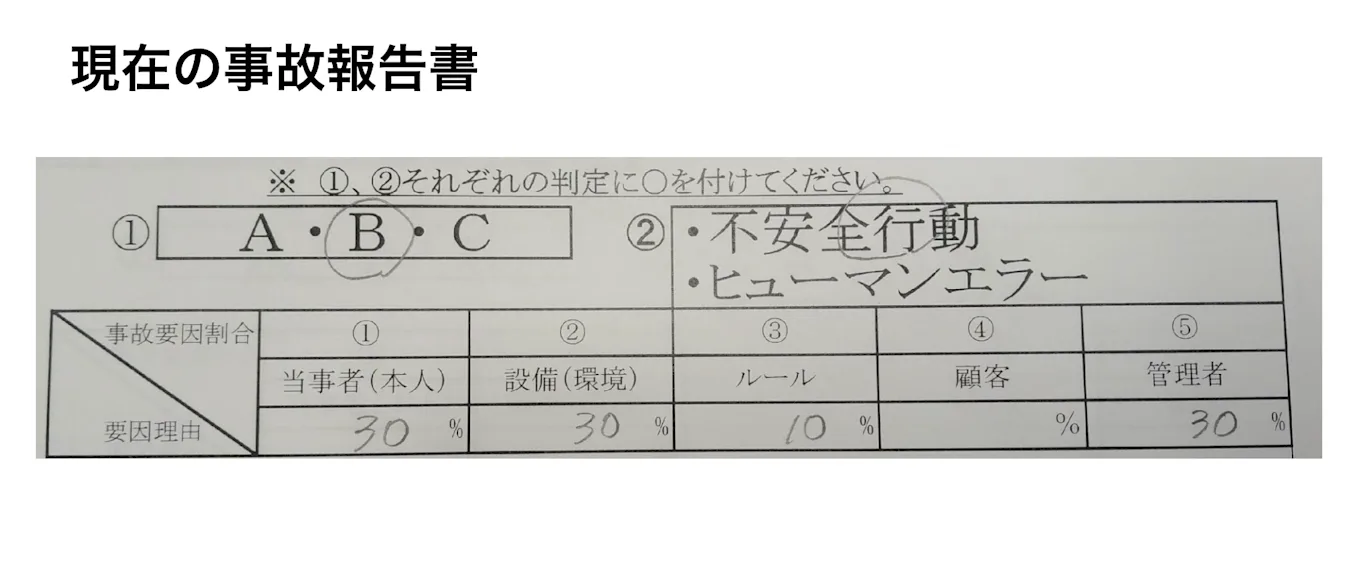 現在の事故報告書
※ ①、②それぞれの判定に○を付けてください。
① A・B・C
② ・不安全行動
・ヒューマンエラー
事故要因割合 ① ② ③ ④ ⑤
当事者(本人) 設備(環境) ルール 顧客 管理者
要因理由 30 % 30 % 10 % % 30 %